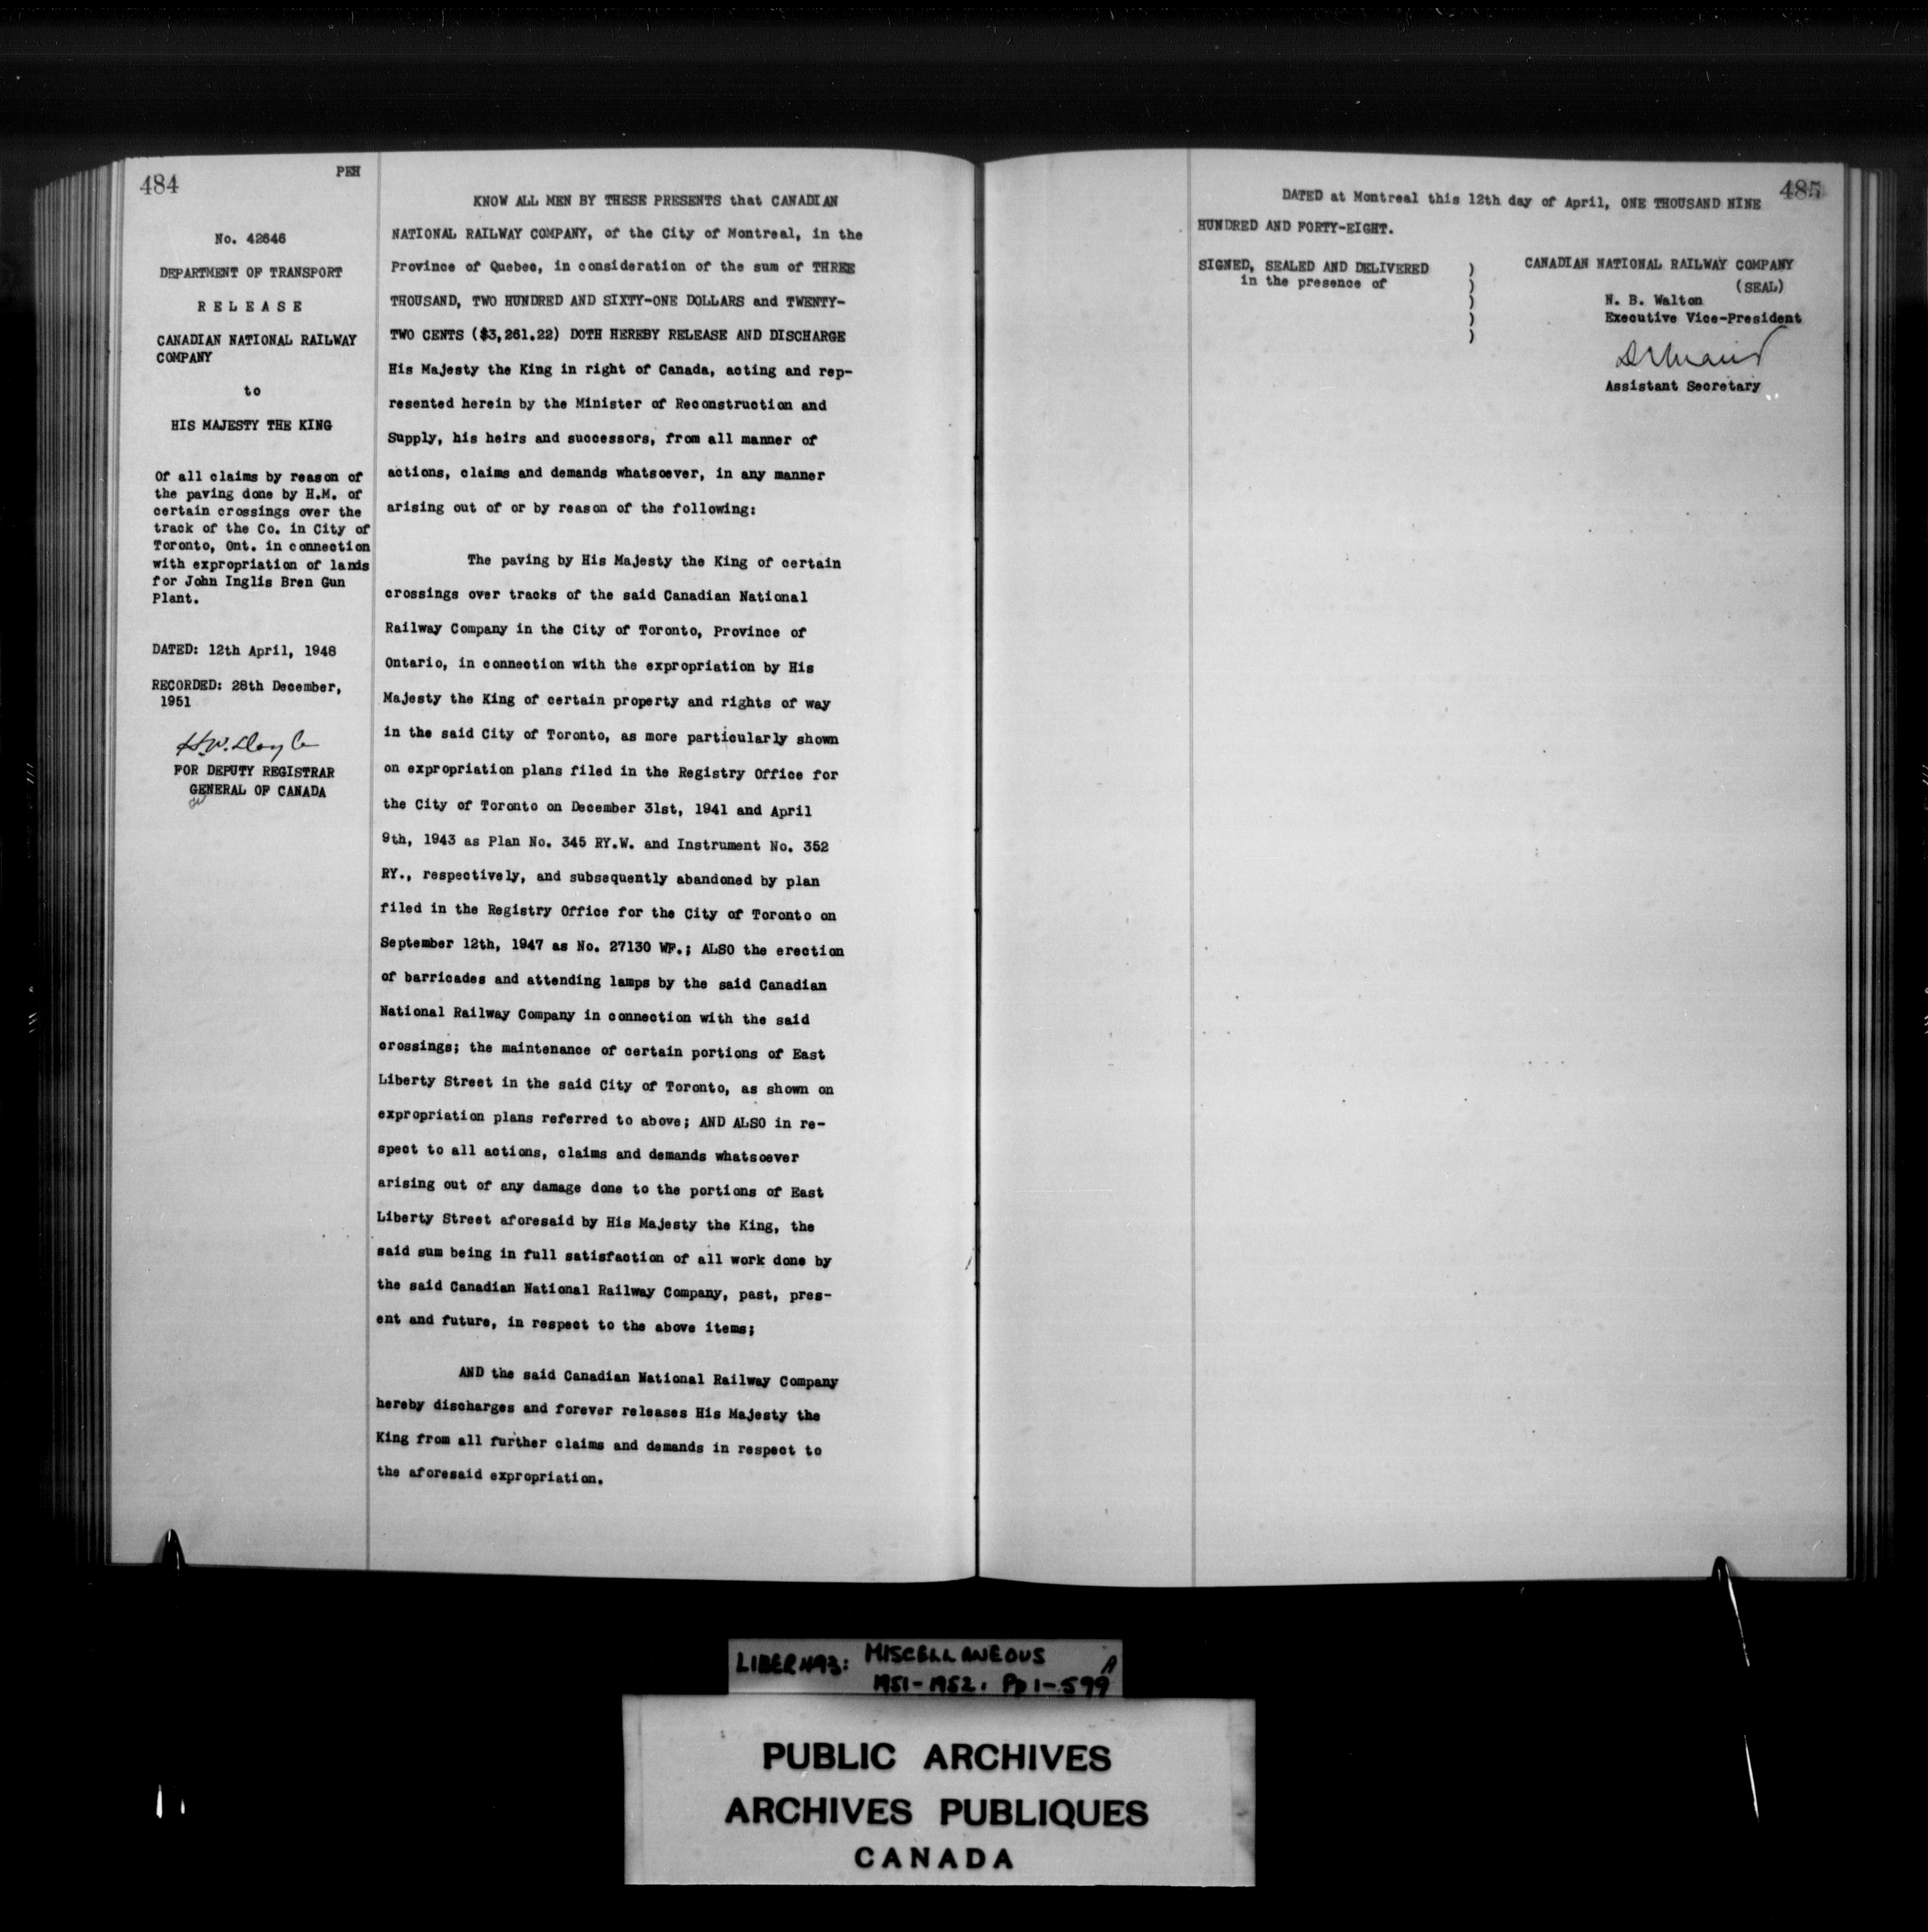 484
PEH
No. 42646
DEPARTMENT OF TRANSPORT
R E L E A S E
CANADIAN NATIONAL RAILWAY
COMPANY
to
HIS MAJESTY THE KING
Of all claims by reason of
the paving done by H.M. of
certain crossings over the
track of the Co. in City of
Toronto, Ont. in connection
with expropriation of lands
for John Inglis Bren Gun
Plant.
DATED: 12th April, 1948
RECORDED: 28th December,
1951
H.W. Doyle
FOR DEPUTY REGISTRAR
GENERAL OF CANADA
KNOW ALL MEN BY THESE PRESENTS that CANADIAN
NATIONAL RAILWAY COMPANY, of the City of Montreal, in the
Province of Quebec, in consideration of the sum of THREE
THOUSAND, TWO HUNDRED AND SIXTY-ONE DOLLARS and TWENTY-
TWO CENTS ($3,261.22) DOTH HEREBY RELEASE AND DISCHARGE
His Majesty the King in right of Canada, acting and rep-
resented herein by the Minister of Reconstruction and
Supply, his heirs and successors, from all manner of
actions, claims and demands whatsoever, in any manner
arising out of or by reason of the following:
The paving by His Majesty the King of certain
crossings over tracks of the said Canadian National
Railway Company in the City of Toronto, Province of
Ontario, in connection with the expropriation by His
Majesty the King of certain property and rights of way
in the said City of Toronto, as more particularly shown
on expropriation plans filed in the Registry Office for
the City of Toronto on December 31st, 1941 and April
9th, 1943 as Plan No. 345 RY.W. and Instrument No. 352
RY., respectively, and subsequently abandoned by plan
filed in the Registry Office for the City of Toronto on
September 12th, 1947 as No. 27130 WF.; ALSO the erection
of barricades and attending lamps by the said Canadian
National Railway Company in connection with the said
crossings; the maintenance of certain portions of East
Liberty Street in the said City of Toronto, as shown on
expropriation plans referred to above; AND ALSO in re-
spect to all actions, claims and demands whatsoever
arising out of any damage done to the portions of East
Liberty Street aforesaid by His Majesty the King, the
said sum being in full satisfaction of all work done by
the said Canadian National Railway Company, past, pres-
ent and future, in respect to the above items;
AND the said Canadian National Railway Company
hereby discharges and forever releases His Majesty the
King from all further claims and demands in respect to
the aforesaid expropriation.
485
DATED at Montreal this 12th day of April, ONE THOUSAND NINE
HUNDRED AND FORTY-EIGHT.
SIGNED, SEALED AND DELIVERED )
in the presence of )
)
)
)
CANADIAN NATIONAL RAILWAY COMPANY
(SEAL)
N. B. Walton
Executive Vice-President
Assistant Secretary
LIBER 493: MISCELLANEOUS A
1951-1952. Pp 1-599
PUBLIC ARCHIVES
ARCHIVES PUBLIQUES
CANADA